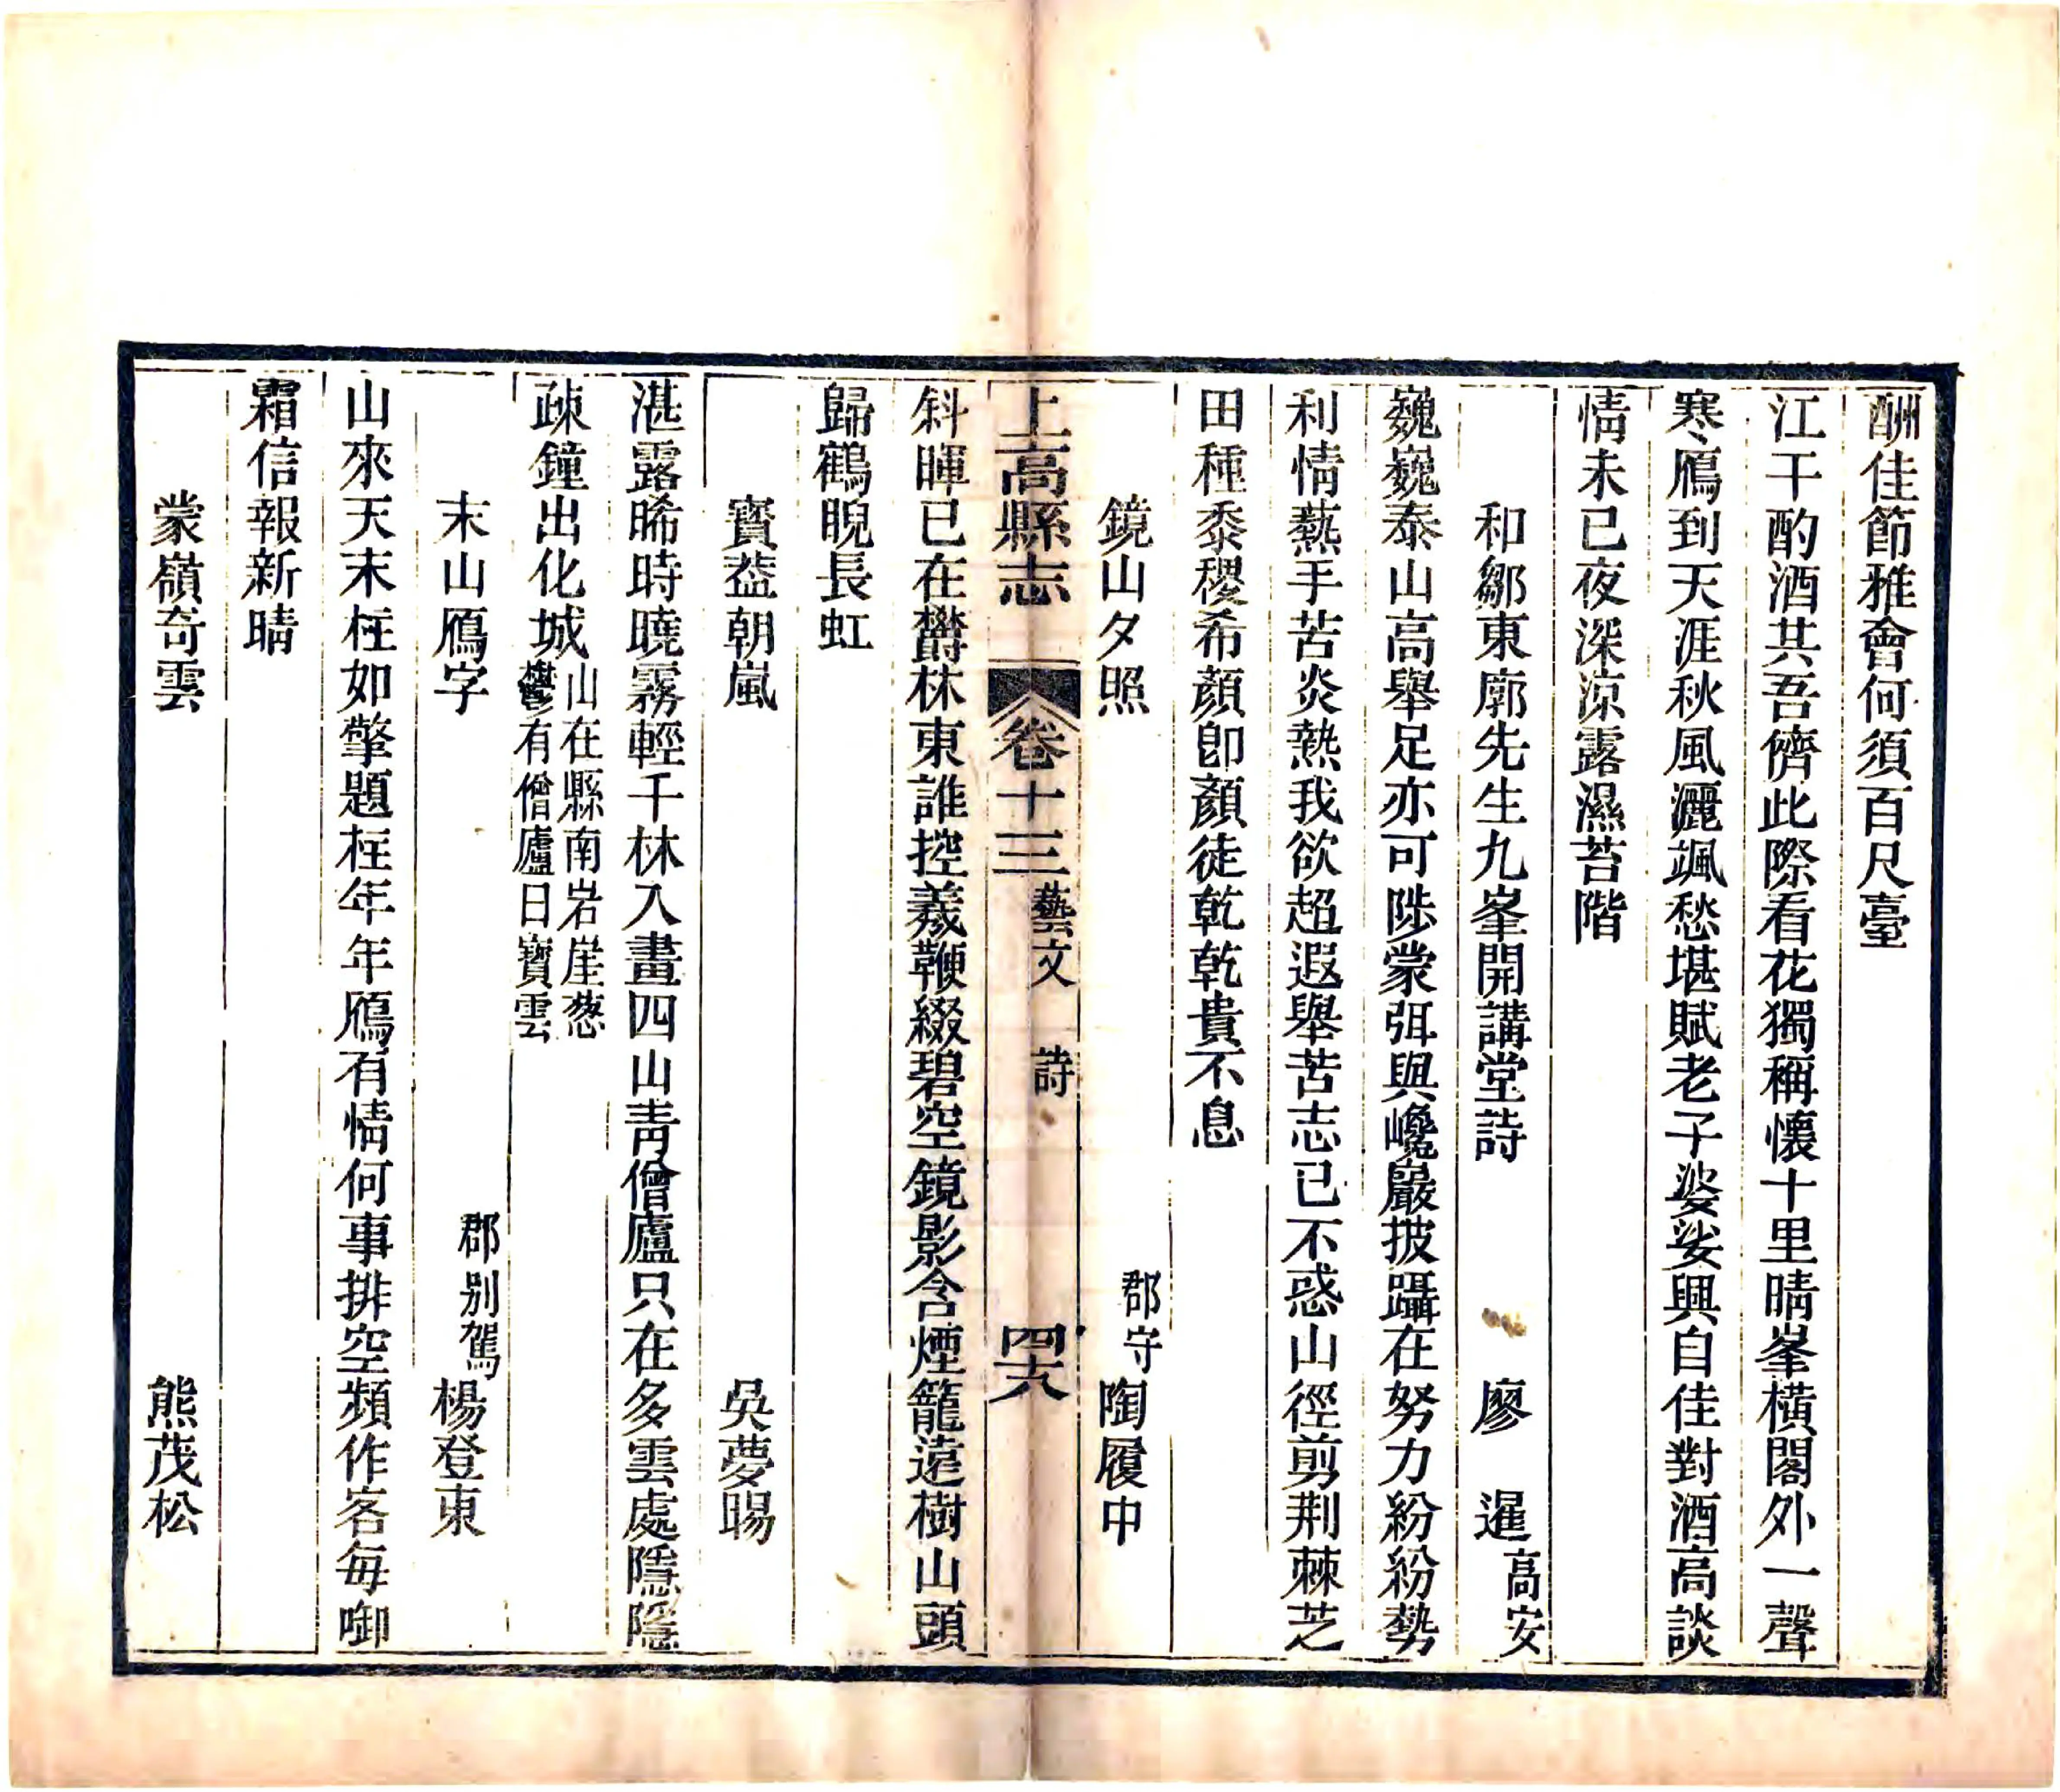 酬佳節雅會何須百尺臺
江干酌酒共吾儕此際看花獨稱懷十里晴峯橫閣外一聲
寒鴈到天涯秋風灑颯愁堪賦老子婆娑興自佳對酒高談
情未已夜深凉露濕苔階
和鄒東廓先生九峯開講堂詩　廖　暹高安
巍巍泰山高舉足亦可陟蒙弭與巉巖披躡在努力紛紛勢
利情爇手苦炎熱我欲超遐舉苦志已不惑山徑剪荆棘芝
田種黍稷希顔卽顔徒乾乾貴不息
鏡山夕照　郡守陶履中
上高縣志　卷十三　藝文　詩　四六
斜暉已在欝林東誰控羲鞭綴碧空鏡影含煙籠遠樹山頭
歸鶴睨長虹
寳葢朝嵐　吳夢暘
湛露晞時曉霧輕千林入畫四山青僧廬只在多雲處隱隱
疎鐘出化城山在縣南岩崖葱鬱有僧廬曰寳雲
末山鴈字　郡别駕楊登東
山來天末枉如擎題枉年年鴈有情何事排空頻作客每啣
霜信報新晴
蒙嶺奇雲　熊茂松